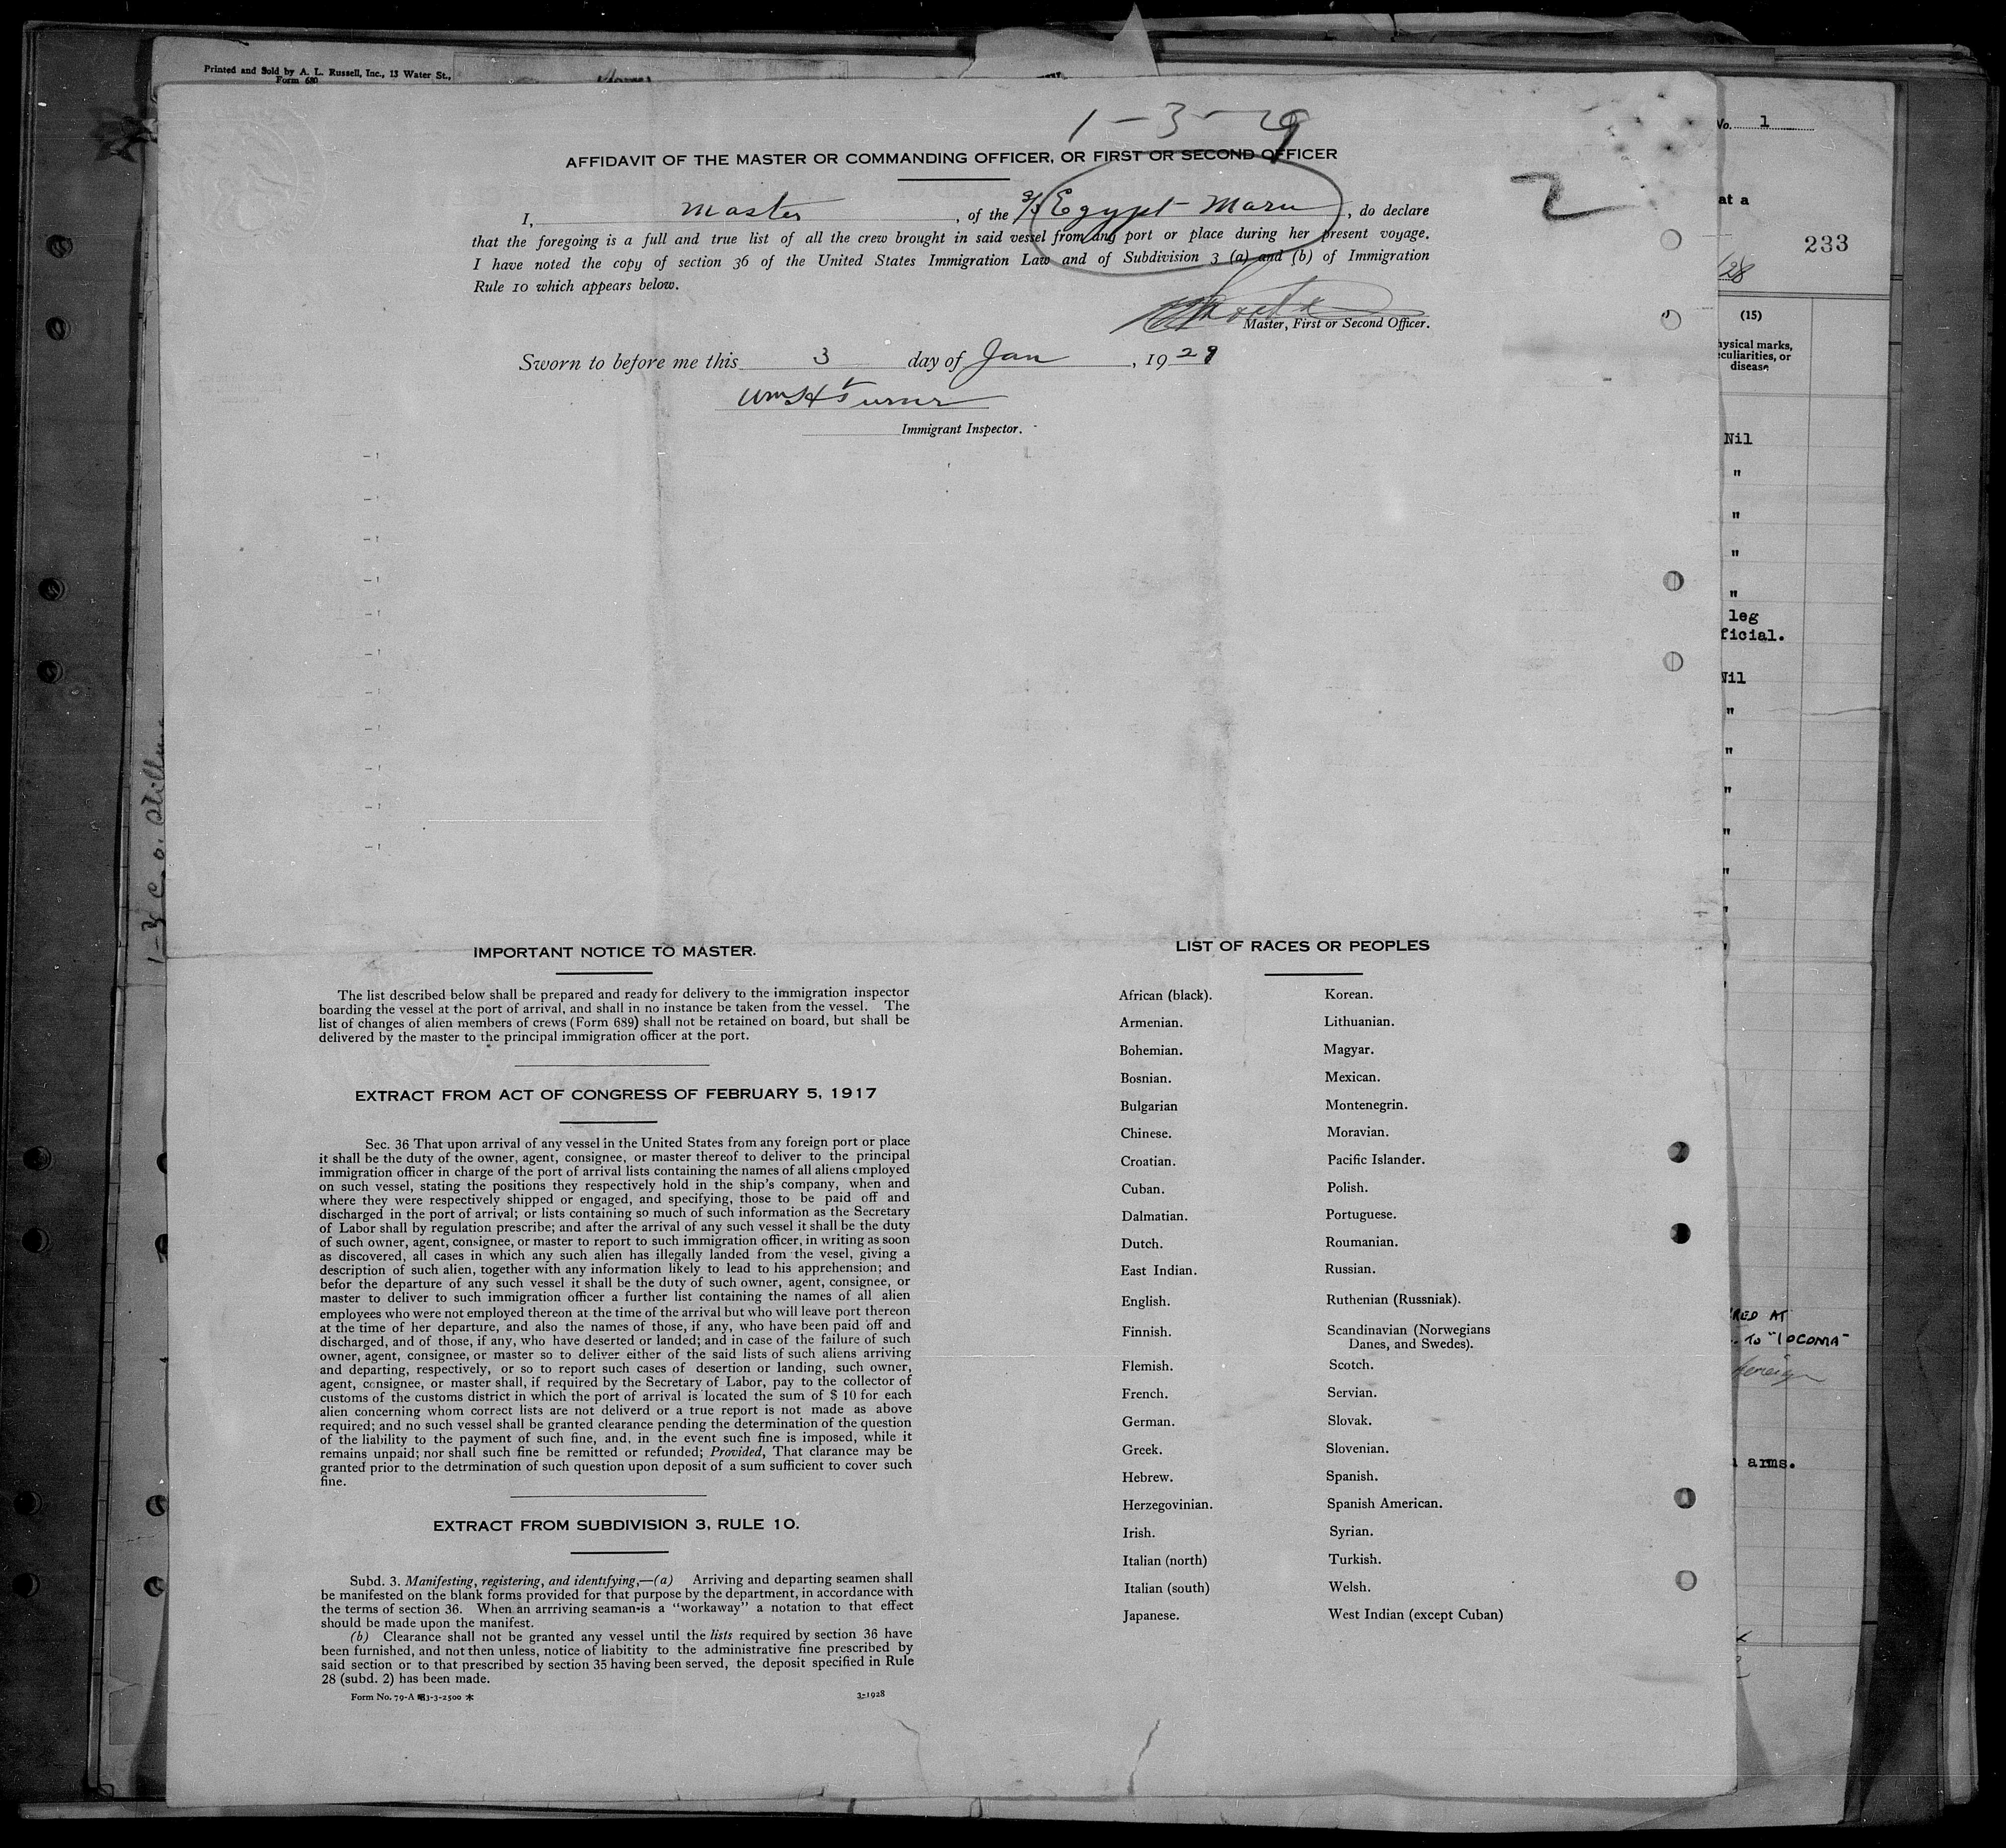 Printed and Sold by A. L. Russell, Inc., 13 Water St.,
Form 680
1-3-29
AFFIDAVIT OF THE MASTER OR COMMANDING OFFICER, OR FIRST OR SECOND OFFICER
2
I, Master, of the S/S Egypt Maru, do declare
that the foregoing is a full and true list of all the crew brought in said vessel from any port or place during her present voyage.
I have noted the copy of section 36 of the United States Immigration Law and of Subdivision 3 (a) and (b) of Immigration
Rule 10 which appears below.
Master, First or Second Officer.
Sworn to before me this 3 day of Jan, 1929
Wm H Turner
Immigrant Inspector.
IMPORTANT NOTICE TO MASTER.
The list described below shall be prepared and ready for delivery to the immigration inspector
boarding the vessel at the port of arrival, and shall in no instance be taken from the vessel. The
list of changes of alien members of crews (Form 689) shall not be retained on board, but shall be
delivered by the master to the principal immigration officer at the port.
EXTRACT FROM ACT OF CONGRESS OF FEBRUARY 5, 1917
Sec. 36 That upon arrival of any vessel in the United States from any foreign port or place
it shall be the duty of the owner, agent, consignee, or master thereof to deliver to the principal
immigration officer in charge of the port of arrival lists containing the names of all aliens employed
on such vessel, stating the positions they respectively hold in the ship's company, when and
where they were respectively shipped or engaged, and specifying, those to be paid off and
discharged in the port of arrival; or lists containing so much of such information as the Secretary
of Labor shall by regulation prescribe; and after the arrival of any such vessel it shall be the duty
of such owner, agent, consignee, or master to report to such immigration officer, in writing as soon
as discovered, all cases in which any such alien has illegally landed from the vesel, giving a
description of such alien, together with any information likely to lead to his apprehension; and
befor the departure of any such vessel it shall be the duty of such owner, agent, consignee, or
master to deliver to such immigration officer a further list containing the names of all alien
employees who were not employed thereon at the time of the arrival but who will leave port thereon
at the time of her departure, and also the names of those, if any, who have been paid off and
discharged, and of those, if any, who have deserted or landed; and in case of the failure of such
owner, agent, consignee, or master so to deliver either of the said lists of such aliens arriving
and departing, respectively, or so to report such cases of desertion or landing, such owner,
agent, consignee, or master shall, if required by the Secretary of Labor, pay to the collector of
customs of the customs district in which the port of arrival is located the sum of $ 10 for each
alien concerning whom correct lists are not deliverd or a true report is not made as above
required; and no such vessel shall be granted clearance pending the determination of the question
of the liability to the payment of such fine, and, in the event such fine is imposed, while it
remains unpaid; nor shall such fine be remitted or refunded; Provided, That clarance may be
granted prior to the detrmination of such question upon deposit of a sum sufficient to cover such
fine.
EXTRACT FROM SUBDIVISION 3, RULE 10.
Subd. 3. Manifesting, registering, and identifying,—(a) Arriving and departing seamen shall
be manifested on the blank forms provided for that purpose by the department, in accordance with
the terms of section 36. When an arrriving seaman-is a "workaway" a notation to that effect
should be made upon the manifest.
(b) Clearance shall not be granted any vessel until the lists required by section 36 have
been furnished, and not then unless, notice of liabitity to the administrative fine prescribed by
said section or to that prescribed by section 35 having been served, the deposit specified in Rule
28 (subd. 2) has been made.
Form No. 79-A 3-3-2500 *
3-1928
LIST OF RACES OR PEOPLES
African (black). Korean.
Armenian. Lithuanian.
Bohemian. Magyar.
Bosnian. Mexican.
Bulgarian Montenegrin.
Chinese. Moravian.
Croatian. Pacific Islander.
Cuban. Polish.
Dalmatian. Portuguese.
Dutch. Roumanian.
East Indian. Russian.
English. Ruthenian (Russniak).
Finnish. Scandinavian (Norwegians
Danes, and Swedes).
Flemish. Scotch.
French. Servian.
German. Slovak.
Greek. Slovenian.
Hebrew. Spanish.
Herzegovinian. Spanish American.
Irish. Syrian.
Italian (north) Turkish.
Italian (south) Welsh.
Japanese. West Indian (except Cuban)
No. 1
at a
233
/28
(15)
hysical marks,
eculiarities, or
disease
Nil
"
"
"
"
leg
ficial.
Nil
"
"
"
"
"
"
"
"
RED AT
TO "IOCOMA"
arms.